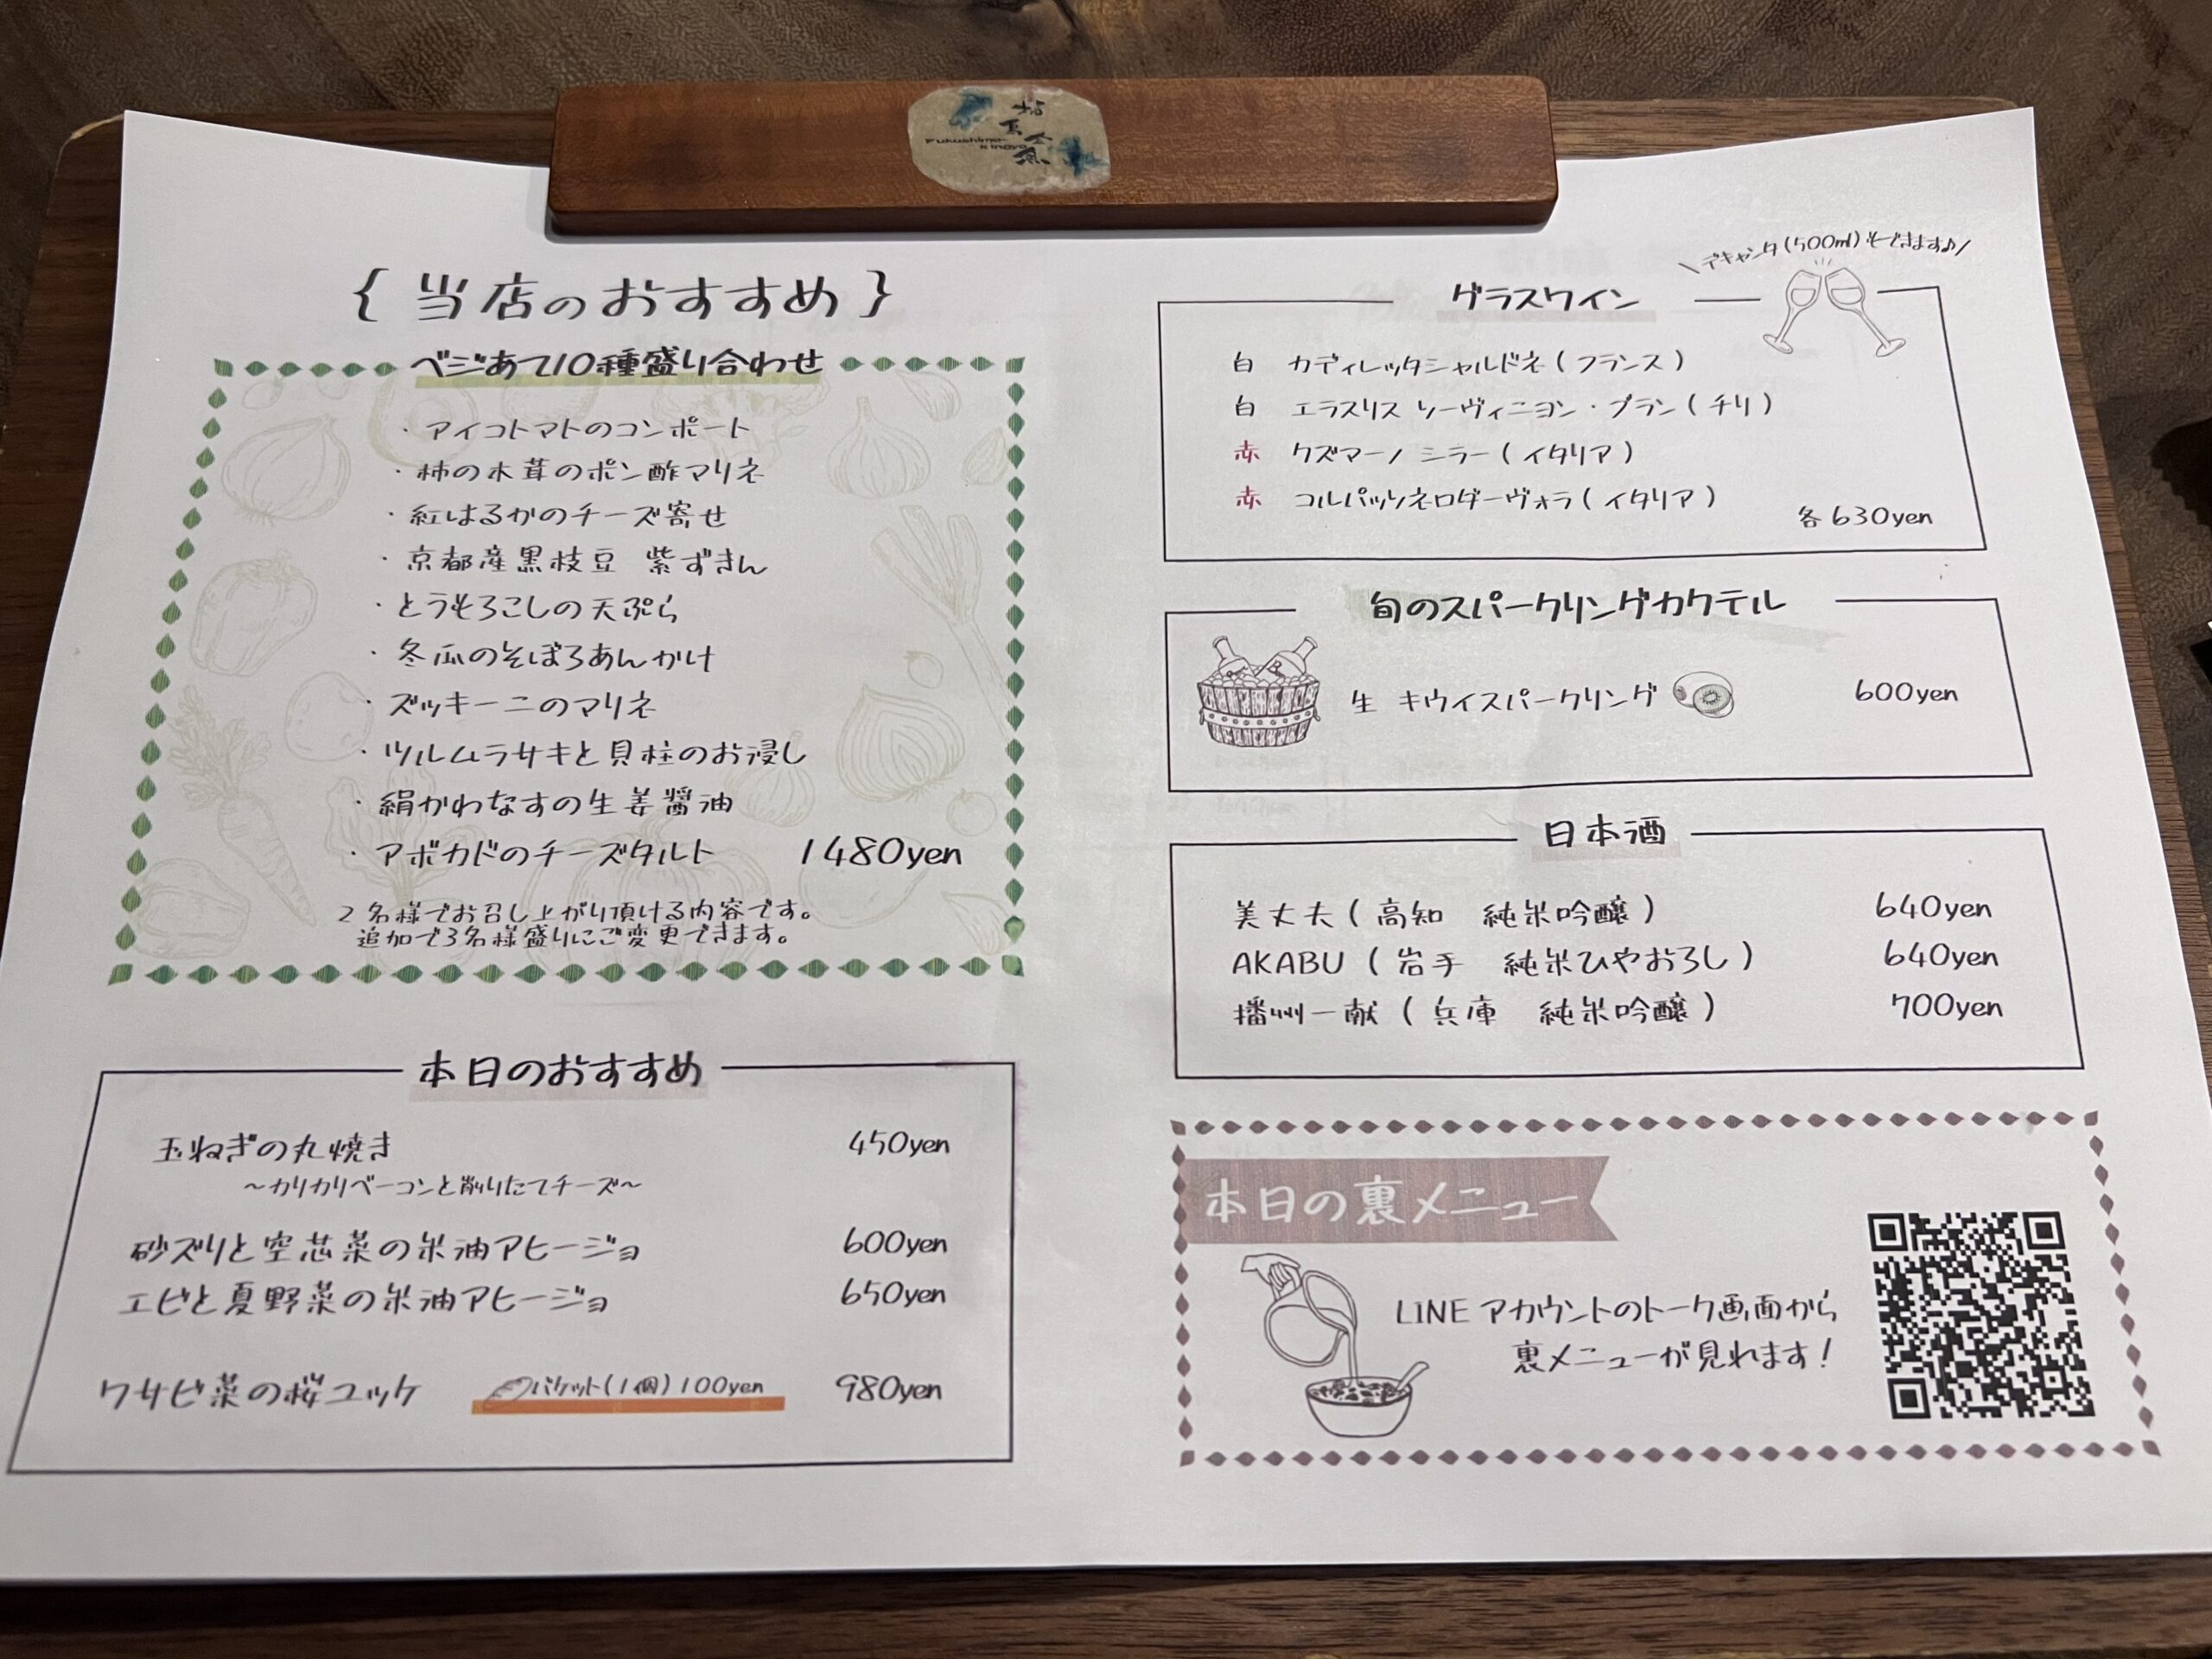 Fukushima
Kingyo
{ 当店のおすすめ }
ベジあて10種盛り合わせ
・アイコトマトのコンポート
・柿の木茸のポン酢マリネ
・紅はるかのチーズ寄せ
・京都産黒枝豆 紫ずきん
・とうもろこしの天ぷら
・冬瓜のそぼろあんかけ
・ズッキーニのマリネ
・ツルムラサキと貝柱のお浸し
・絹かわなすの生姜醤油
・アボカドのチーズタルト 1480yen
2名様でお召し上がり頂ける内容です。
追加で3名様盛りにご変更できます。
本日のおすすめ
玉ねぎの丸焼き 450yen
〜カリカリベーコンと削りたてチーズ〜
砂ズリと空芯菜の米油アヒージョ 600yen
エビと夏野菜の米油アヒージョ 650yen
ワサビ菜の桜ユッケ バケット(1個)100yen 980yen
\デキャンタ(500ml)もできます♪/
グラスワイン
白 カディレッタシャルドネ(フランス)
白 エラスリス ソーヴィニヨン・ブラン(チリ)
赤 クズマーノ シラー(イタリア)
赤 コルパッソネロダーヴォラ(イタリア)
各630yen
旬のスパークリングカクテル
生 キウイスパークリング 600yen
日本酒
美丈夫(高知 純米吟醸) 640yen
AKABU(岩手 純米ひやおろし) 640yen
播州一献(兵庫 純米吟醸) 700yen
本日の裏メニュー
LINEアカウントのトーク画面から
裏メニューが見れます!